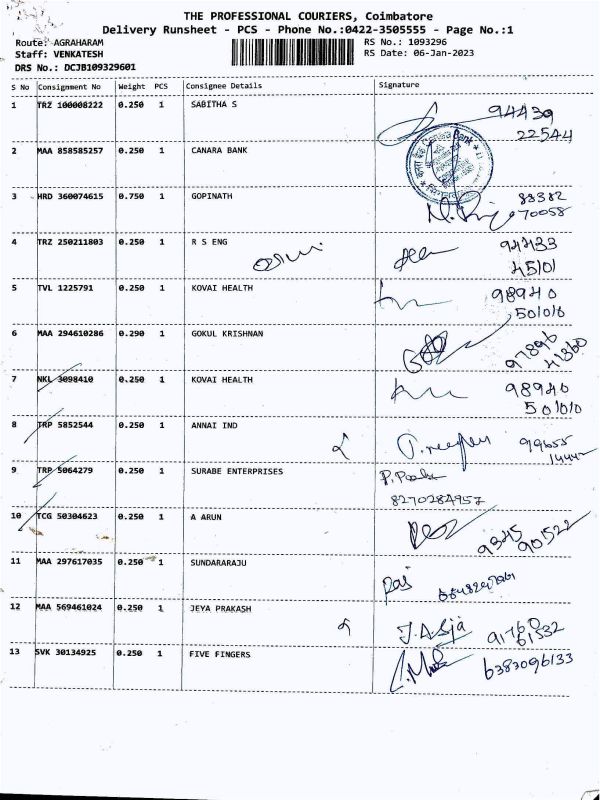 THE PROFESSIONAL COURIERS, Coimbatore
Delivery Runsheet - PCS - Phone No.:0422-3505555 - Page No.:1
Route: AGRAHARAM RS No.: 1093296
Staff: VENKATESH RS Date: 06-Jan-2023
DRS No.: DCJB109329601
S No Consignment No Weight PCS Consignee Details Signature
1 TRZ 100008222 0.250 1 SABITHA S 94439
22544
Canara Bank
2 MAA 858585257 0.250 1 CANARA BANK
3 HRD 360074615 0.750 1 GOPINATH 88382
70058
4 TRZ 250211803 0.250 1 R S ENG 94433
45101
5 TVL 1225791 0.250 1 KOVAI HEALTH 98940
501010
6 MAA 294610286 0.290 1 GOKUL KRISHNAN 97896
41360
7 NKL 3098410 0.250 1 KOVAI HEALTH 98940
501010
8 TRP 5852544 0.250 1 ANNAI IND 99655
9 TRP 5064279 0.250 1 SURABE ENTERPRISES
8270284957
10 TCG 50304623 0.250 1 A ARUN 9345
90522
11 MAA 297617035 0.250 1 SUNDARARAJU Raj
12 MAA 569461024 0.250 1 JEYA PRAKASH 91760
61332
13 SVK 30134925 0.250 1 FIVE FINGERS 6383096133